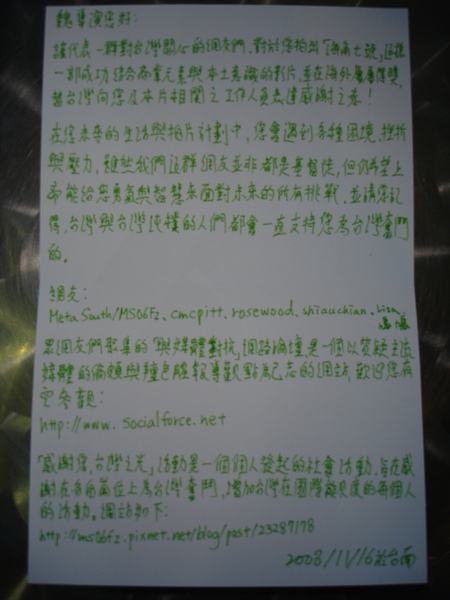 魏導演您好:
謹代表一群對台灣關心的網友們,對於您拍出「海角七號」這樣
一部成功結合商業元素與本土意識的影片,並在海外屢屢得獎,
替台灣向您及本片相關之工作人員表達感謝之意!
在您未來的生活與拍片計劃中,您會遇到各種困境、挫折
與壓力,雖然我們這群網友並非都是基督徒,但仍希望上
帝能給您勇氣與智慧來面對未來的所有挑戰,並請您記
得,台灣與台灣純樸的人們都會一直支持您為台灣奮鬥
的。
網友:
Meta South/MS06Fz、cmcpitt、rosewood、shiauchian、Lisa、
眾網友們聚集的"與媒體對抗"網路論壇,是一個以質疑主流
媒體的偏頗與種色腥報導觀點為己志的網站,歡迎您有
空參觀:
http://www.socialforce.net
「感謝您,台灣之光」活動是一個個人發起的社會活動,旨在感
謝在各自崗位上為台灣奮鬥,增加台灣在國際能見度的每個人
的活動。網站如下:
http://ms06fz.pixnet.net/blog/post/23287178
2008/11/16於台南